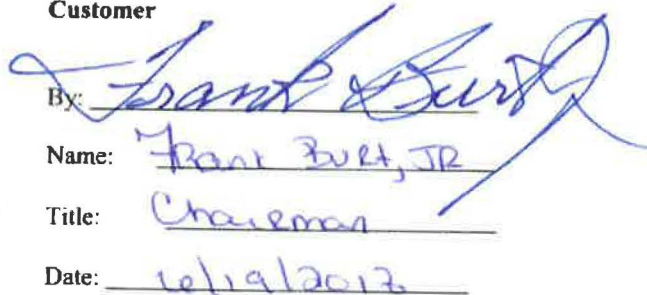 Customer
By: Frank Burt Jr
Name: Frank Burt, JR
Title: Chairman
Date: 6/19/2012